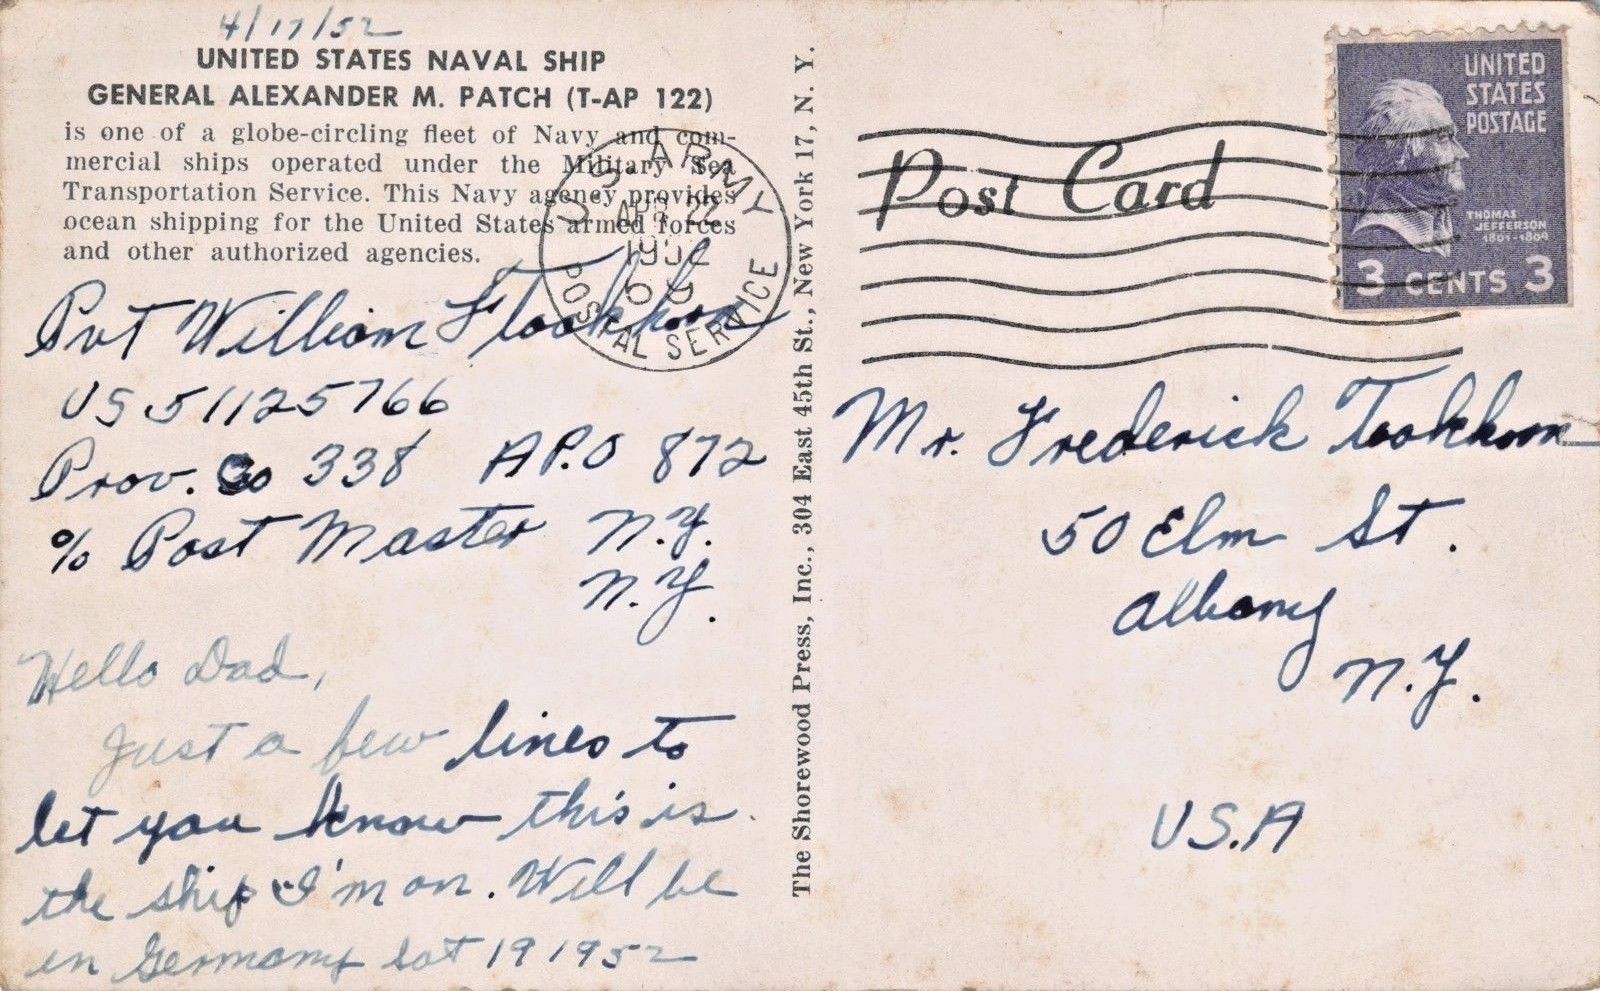 4/17/52
UNITED STATES NAVAL SHIP
GENERAL ALEXANDER M. PATCH (T-AP 122)
is one of a globe-circling fleet of Navy and com-
mercial ships operated under the Military Sea
Transportation Service. This Navy agency provides
ocean shipping for the United States armed forces
and other authorized agencies.
U.S. ARMY
APR 22
1952
POSTAL SERVICE
Pvt William
US 51125766
Prov. Co 338 A P.O 872
% Post Master N.Y.
N.Y.
Hello Dad,
Just a few lines to
let you know this is
the ship I'm on. Will be
in Germany sat 19 1952
The Shorewood Press, Inc., 304 East 45th St., New York 17, N. Y.
Post Card
UNITED
STATES
POSTAGE
THOMAS
JEFFERSON
1801-1809
3 CENTS 3
Mr. Frederick Tookhorn
50 Elm St.
Albany
N.Y.
U.S.A